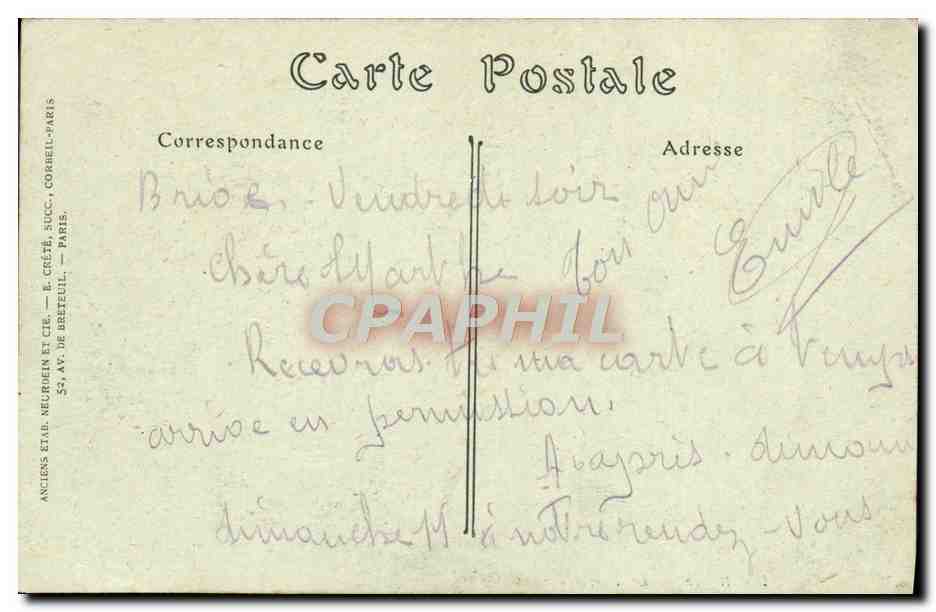 Carte Postale
Correspondance
Adresse
ANCIENS ETAB. NEURDEIN ET CIE. — E. CRÉTÉ, SUCC., CORBEIL-PARIS
52, AV. DE BRETEUIL. — PARIS.
Vendredi soir
Chère Marthe
CPAPHIL
Recevras tu ma carte à temps
arrive en permission.
dimanche à notre rendez-vous